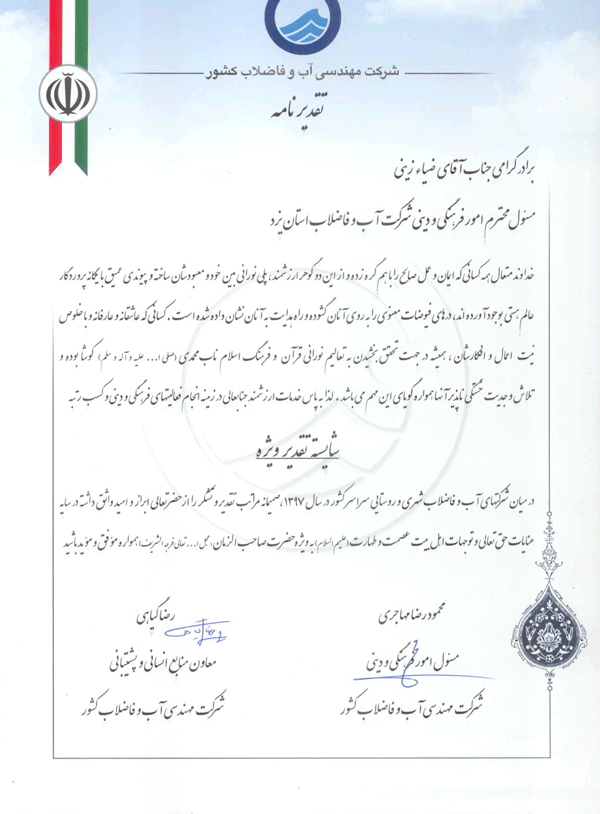 شرکت مهندسی آب و فاضلاب کشور
تقدیر نامه
برادر گرامی جناب آقای ضیاء زینی
مسئول محترم امور فرهنگی و دینی شرکت آب و فاضلاب استان یزد
خداوند متعال همه کسانی که ایمان و عمل صالح را با هم گره زده و از این دو گوهر ارزشمند، پلی نورانی بین خود و معبودشان ساخته و پیوندی عمیق با یگانه پروردگار
عالم هستی بوجود آورده اند، درهای فیوضات معنوی را به روی آنان گشوده و راه هدایت به آنان نشان داده شده است . کسانی که عاشقانه و عارفانه و با خلوص
نیت اعمال و افکارشان ، همیشه در جهت تحقق بخشیدن به تعالیم نورانی قرآن و فرهنگ اسلام ناب محمدی (صلی ا... علیه و آله و سلم) کوشا بوده و
تلاش و جدیت خستگی ناپذیر آنها همواره گویای این مهم می باشد . لذا به پاس خدمات ارزشمند جنابعالی در زمینه انجام فعالیتهای فرهنگی و دینی و کسب رتبه
شایسته تقدیر ویژه
در میان شرکتهای آب و فاضلاب شهری و روستایی سراسر کشور در سال ۱۳۹۷، صمیمانه مراتب تقدیر و تشکر را از حضرتعالی ابراز و امید واثق داشته در سایه
عنایات حق تعالی و توجهات اهل بیت عصمت و طهارت (علیهم السلام) به ویژه حضرت صاحب الزمان (عجل ا... تعالی فرجه الشریف) همواره موفق و مؤید باشید
محمود رضا مهاجری
رضا گیاهی
مسئول امور فرهنگی و دینی
معاون منابع انسانی و پشتیبانی
شرکت مهندسی آب و فاضلاب کشور
شرکت مهندسی آب و فاضلاب کشور